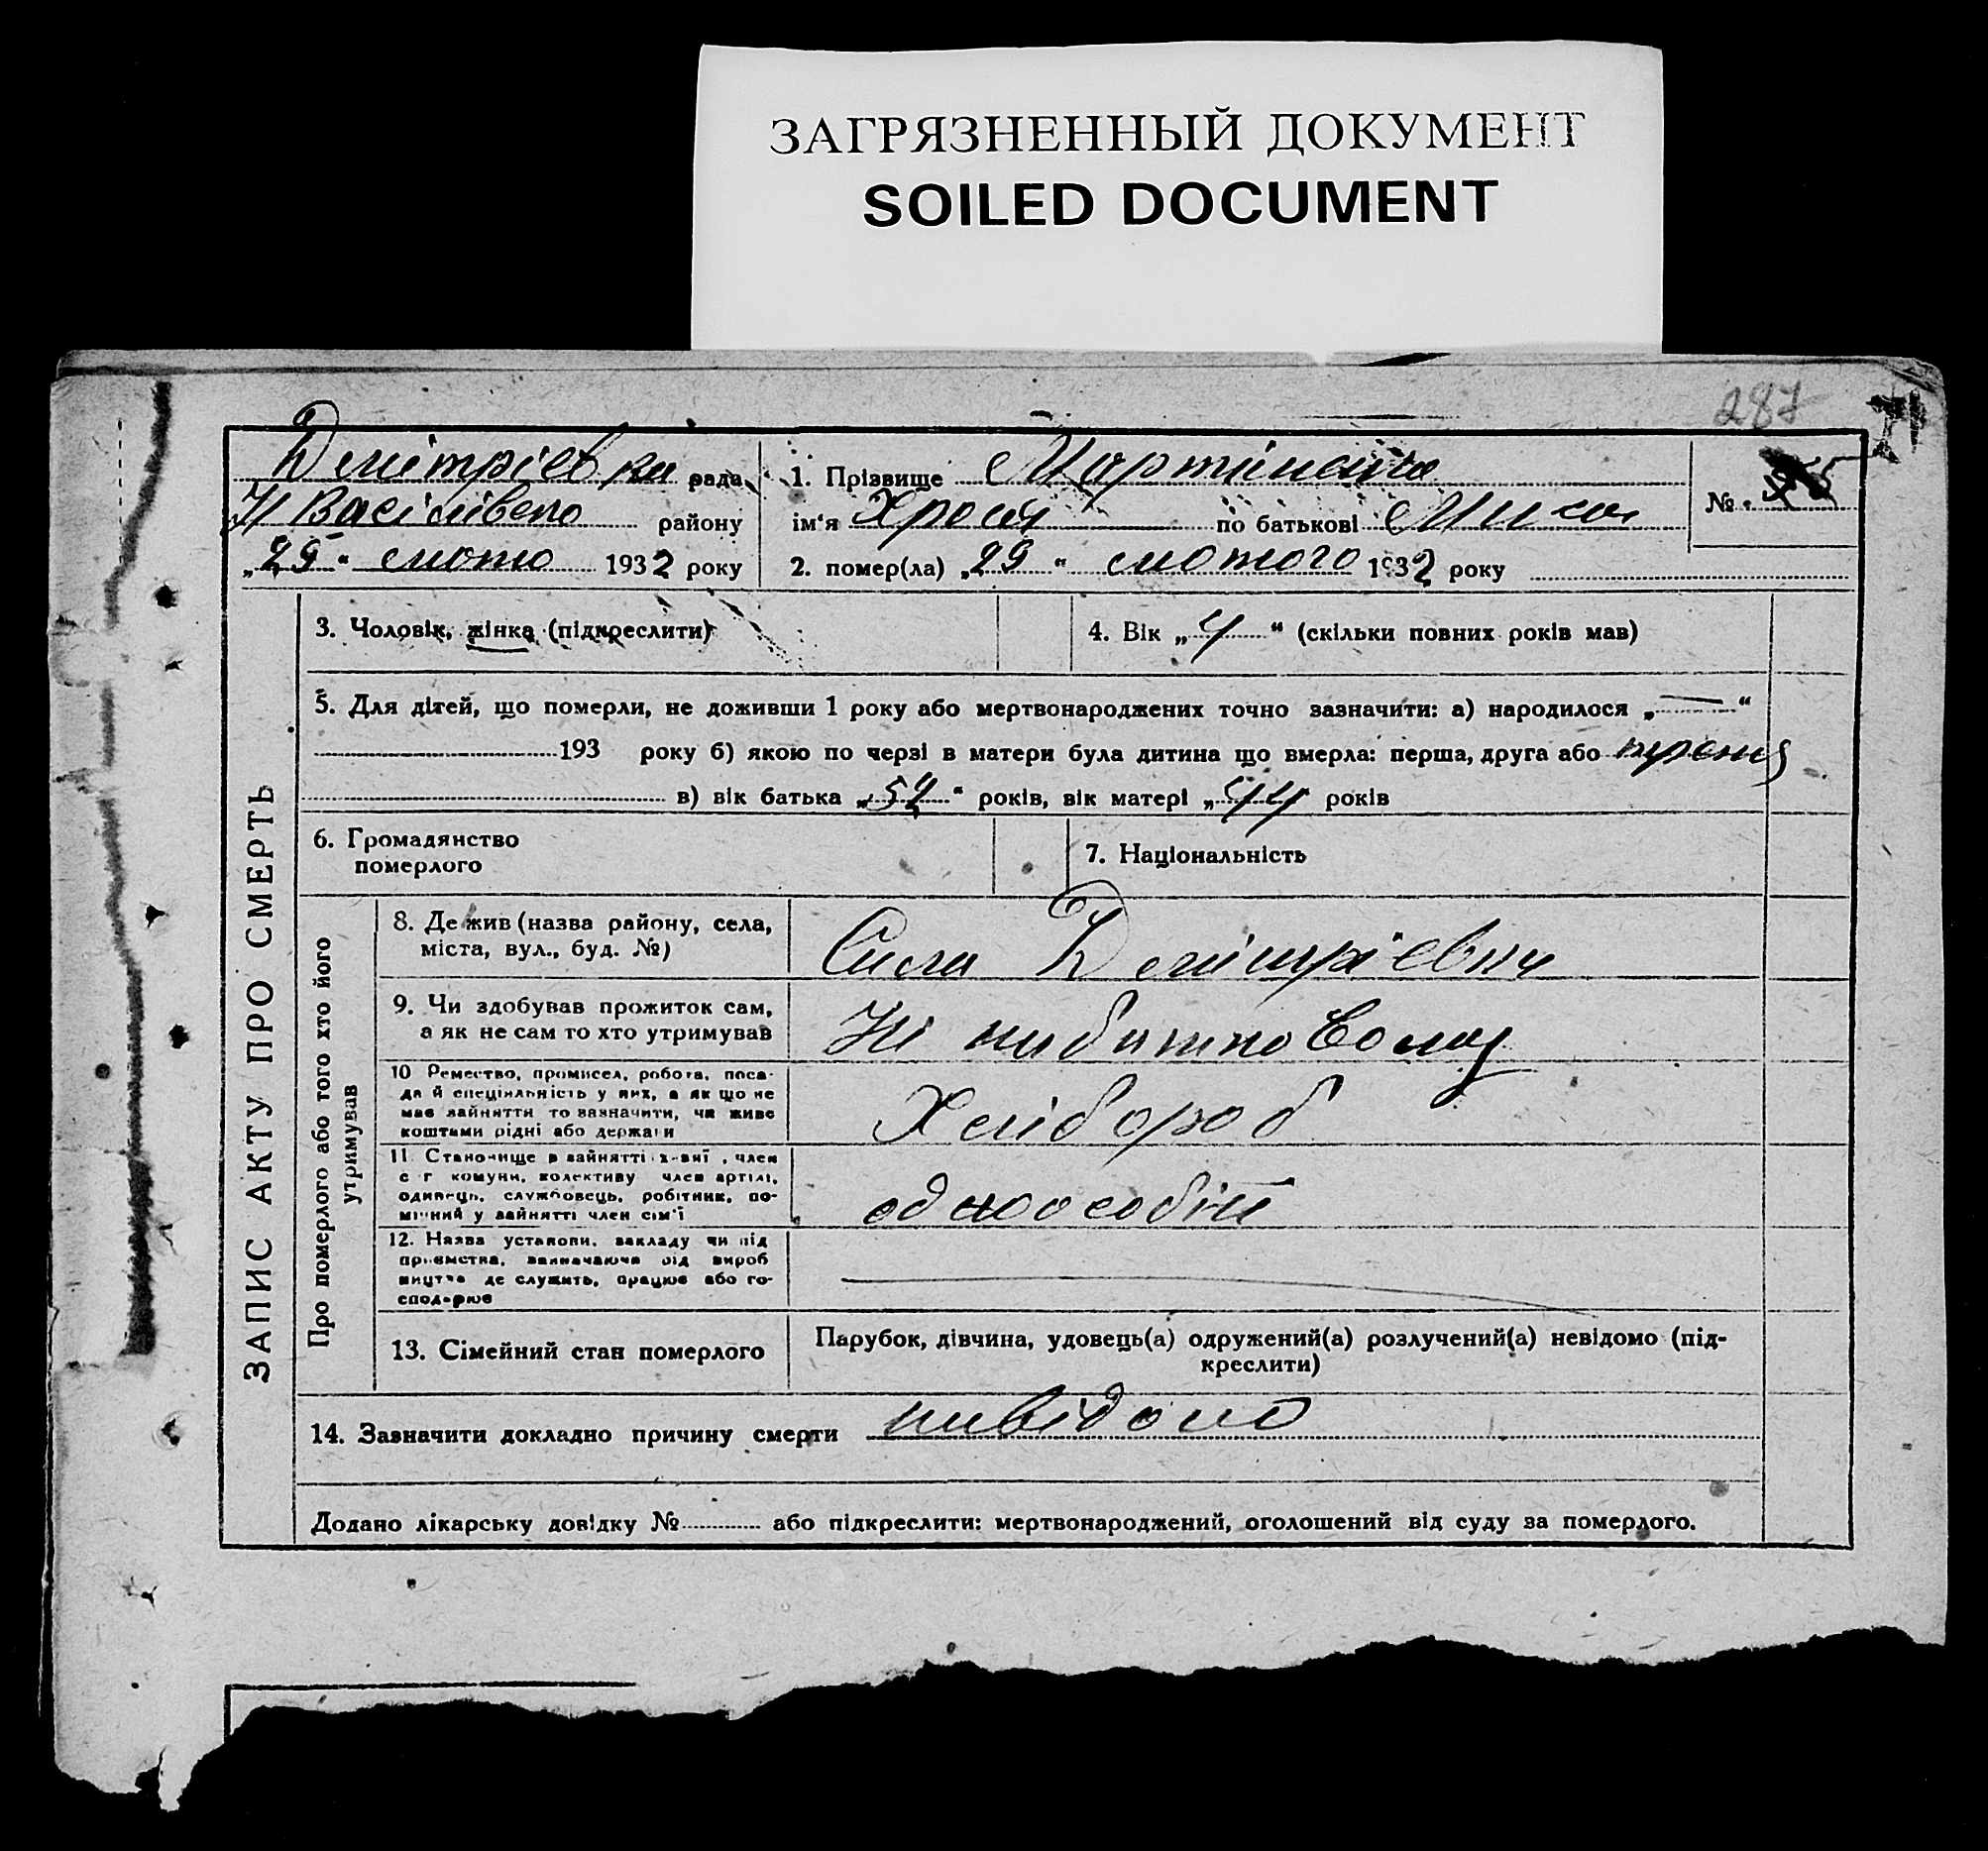 ЗАГРЯЗНЕННЫЙ ДОКУМЕНТ
SOILED DOCUMENT
287
Дмітріевка рада
Н Васілівсько району
„25“ лютого 1932 року
1. Прізвище Мартиненко
ім'я Хрося по батькові Микол
№
2. помер(ла) „25“ лютого 1932 року
ЗАПИС АКТУ ПРО СМЕРТЬ
3. Чоловік, жінка (підкреслити)
4. Вік „4“ (скільки повних років мав)
5. Для дітей, що померли, не доживши 1 року або мертвонароджених точно зазначити: а) народилося „—“
193 року б) якою по черзі в матери була дитина що вмерла: перша, друга або
в) вік батька „52“ років, вік матері „44“ років
6. Громадянство
померлого
7. Національність
Про померлого або того хто його
утримував
8. Де жив (назва району, села,
міста, вул., буд. №)
Села Дмітріевки
9. Чи здобував прожиток сам,
а як не сам то хто утримував
Ні
10 Ремество, промисел, робота, поса-
да й спеціяльність у них, а як що не
має зайняття то зазначити, чи живе
коштами рідні або держави
Хлібороб
11. Становище в зайнятті: член
с г комуни, колективу член артілі,
одинець, службовець, робітник, по-
мічний у зайнятті член сім'ї
одноосібни
12. Назва установи, закладу чи під
приємства, зазначаючи від вироб
ництва де служить, працює або го-
сподарює
13. Сімейний стан померлого
Парубок, дівчина, удовець(а) одружений(а) розлучений(а) невідомо (під-
креслити)
14. Зазначити докладно причину смерти нивідомо
Додано лікарську довідку № або підкреслити: мертвонароджений, оголошений від суду за померлого.